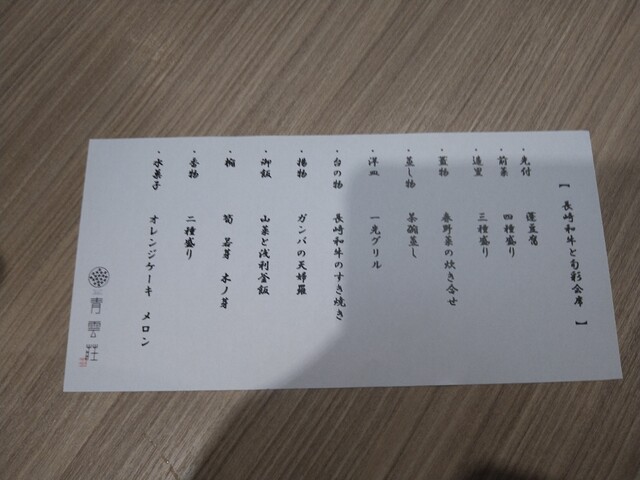 【 長崎和牛と旬彩会席 】
・先付 蓬豆腐
・前菜 四種盛り
・造里 三種盛り
・蓋物 春野菜の炊き合せ
・蒸し物 茶碗蒸し
・洋皿 一光グリル
・台の物 長崎和牛のすき焼き
・揚物 ガンバの天婦羅
・御飯 山菜と浅利釜飯
・椀 筍 若芽 木ノ芽
・香物 二種盛り
・水菓子 オレンジケーキ メロン
青雲荘